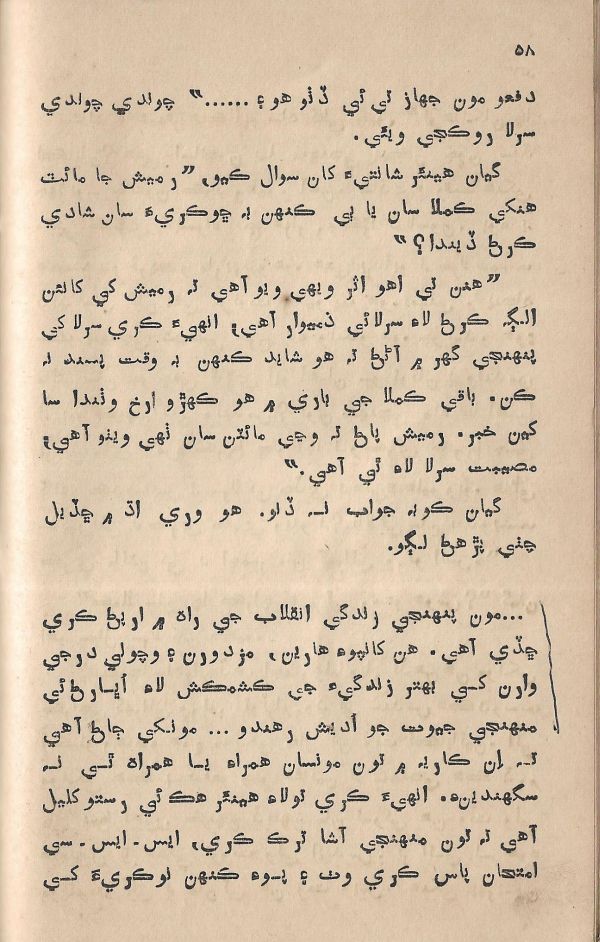 ۵۸
دفعو مون جهاز ئي ئي ڏٺو هو ۽ ......” چوندي چوندي
سرلا روڪجي ويئي.
گيان هينئر شانتيءَ کان سوال ڪيو، ”رميش جا مائٽ
هنکي ڪملا سان يا ٻي ڪنهن بہ ڇوڪريءَ سان شادي
ڪرڻ ڏيندا؟“
”هنن تي اهو اثر ويهي ويو آهي تہ رميش کي کانئن
الڳہ ڪرڻ لاءِ سرلائي ذميوار آهي؛ انهيءَ ڪري سرلا کي
پنهنجي گهر ۾ آڻڻ تہ هو شايد ڪنهن بہ وقت پسند نہ
ڪن. باقي ڪملا جي باري ۾ هو ڪهڙو ارخ وٺندا سا
ڪين خبر. رميش پاڻ تہ وڃي مائٽن سان ٺهي ويٺو آهي؛
مصيبت سرلا لاءِ ئي آهي.“
گيان ڪوبہ جواب نہ ڏنو. هو وري اڌ ۾ ڇڏيل
چٺي پڙهڻ لڳو.
...مون پنهنجي زندگي انقلاب جي راہ ۾ ارپڻ ڪري
ڇڏي آهي. هن کانپوءِ هارين، مزدورن ۽ وچولي درجي
وارن کي بهتر زندگيءَ جي ڪشمڪش لاءِ اُڀارڻ ئي
منهنجي جيوت جو آديش رهندو ... مونکي ڄاڻ آهي
تہ اِن ڪاريہ ۾ تون مونسان همراہ يا همراہ ٿي نہ
سگهندينءَ. انهيءَ ڪري تولاءِ هينئر هڪ ئي رستو کليل
آهي تہ تون منهنجي آشا ترڪ ڪري، ايس۔ايس۔سي
امتحان پاس ڪري وٺ ۽ پوءِ ڪنهن نوڪريءَ کي